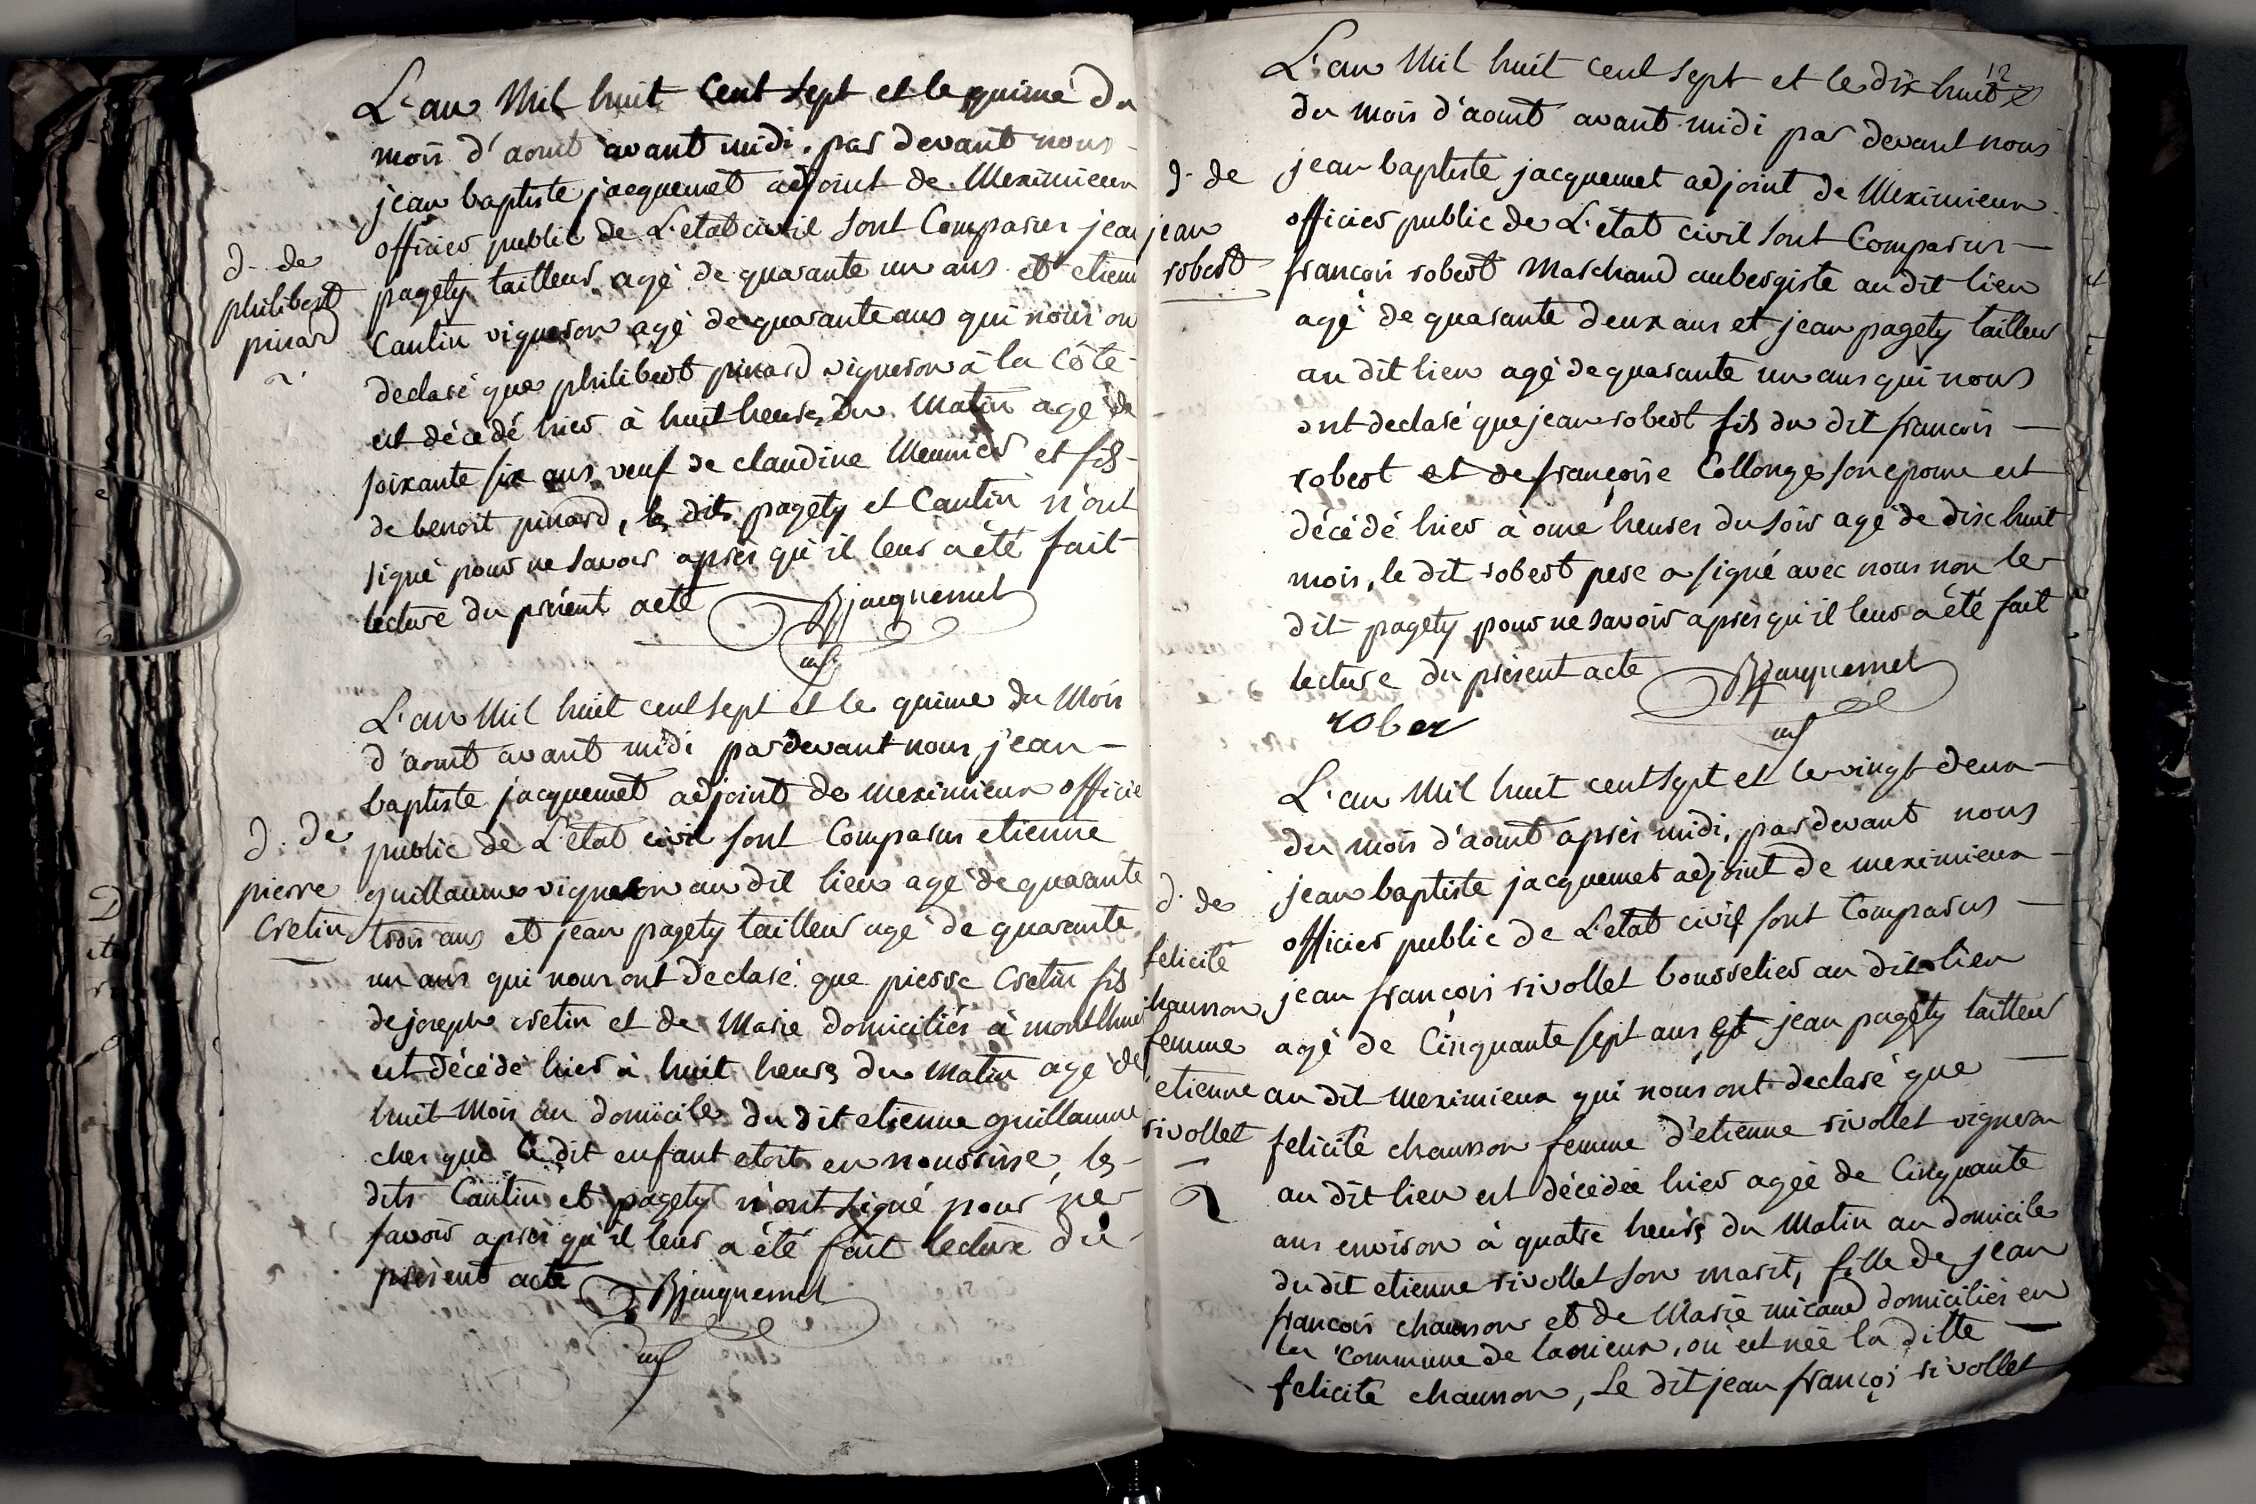 L'an Mil huit Cent sept et le quinze du
mois d'aout avant midi. par devant nous
jean baptiste jacquemet adjoint de Meximieux
officier public de L'etat civil sont Comparus jean
d. de
philibert
pinard
pagety tailleur agé de quarante un ans et etienne
Cantin vigneron agé de quarante ans qui nous on
declaré que philibert pinard vigneron à la Côte
est décédé hier à huit heures du Matin agé de
soixante six ans veuf de claudine Meunier et fils
de benoit pinard, les dits pagety et Cantin n'ont
signé pour ne savoir après qu'il leur a été fait
lecture du présent acte BJacquemet
adj.
L'an Mil huit cent sept et le quinze du Mois
d'aout avant midi par devant nous jean
baptiste jacquemet adjoint de meximieux officie
d. de
pierre
Cretin
public de L'etat civil sont Comparus etienne
guillaume vigneron au dit lieu agé de quarante
trois ans et jean pagety tailleur agé de quarante
un ans qui nous ont declaré que pierre Cretin fils
de joseph cretin et de Marie domiciliés à montlhuel
est décédé hier à huit heures du matin agé de
huit Mois au domicile du dit etienne guillaume
ches qui le dit enfant etoit en nourisse, les
dits Cantin et pagety n'ont signé pour ne
savoir après qu'il leur a été fait lecture du
présent acte BJacquemet
adj
12
L'an Mil huit cent sept et le dix huit
du mois d'aout avant midi par devant nous
d. de
jean
robert
jean baptiste jacquemet adjoint de Meximieux
officier public de L'état civil sont Comparus
francois robert Marchand aubergiste au dit lieu
agé de quarante deux ans et jean pagety tailleur
au dit lieu agé de quarante un ans qui nous
ont declaré que jean robert fils du dit francois
robert et de françoise Collonge son epouse est
décédé hier à onze heures du soir agé de dix huit
mois, le dit robert pere a signé avec nous non le
dit pagety pour ne savoir après qu'il leur a été fait
lecture du présent acte BJacquemet
rober
adj
L'an Mil huit cent sept et le vingt deux
du mois d'aout après midi, par devant nous
d. de
felicité
chausson
femme
etienne
rivollet
jean baptiste jacquemet adjoint de meximieux
officier public de L'etat civil sont Comparus
jean françois rivollet bourrelier au dit lieu
agé de Cinquante sept ans et jean pagety tailleur
au dit meximieux qui nous ont declaré que
felicité chausson femme d'etienne rivollet vigneron
au dit lieu est décédée hier agée de Cinquante
ans environ à quatre heures du Matin au domicile
du dit etienne rivollet son marit, fille de jean
francois chausson et de Marie micand domiciliés en
la commune de lagnieux, où est née la ditte
felicité chausson, Le dit jean françois rivollet